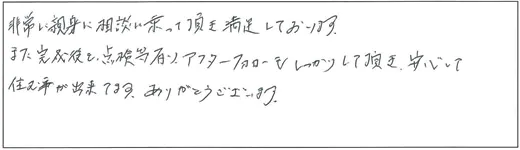 非常に親身に相談に乗って頂き満足しております。
また完成後も、点検等有り、アフターフォローもしっかりして頂き、安心して
住む事が出来てます。ありがとうございます。